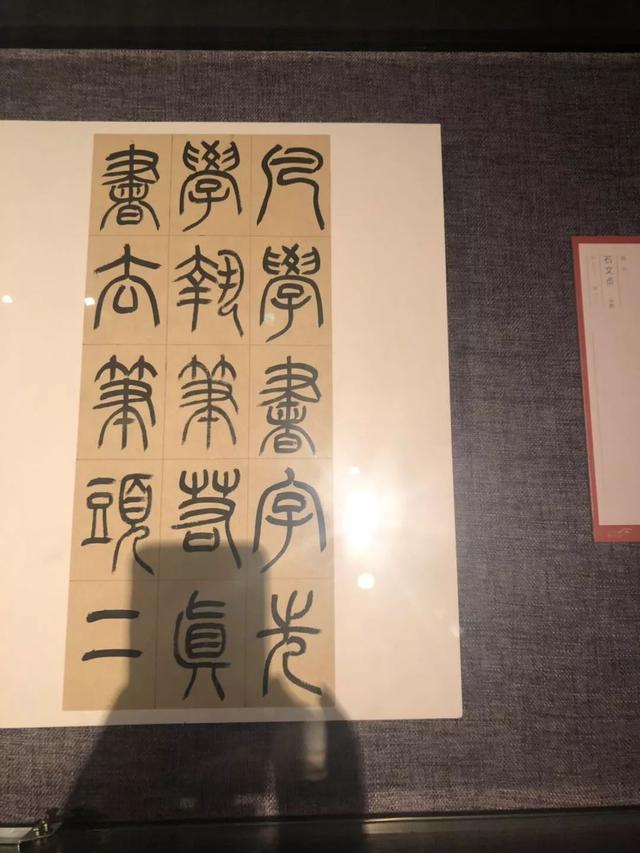 凡學書字先
學執筆若真
書去筆頭二
石文贞